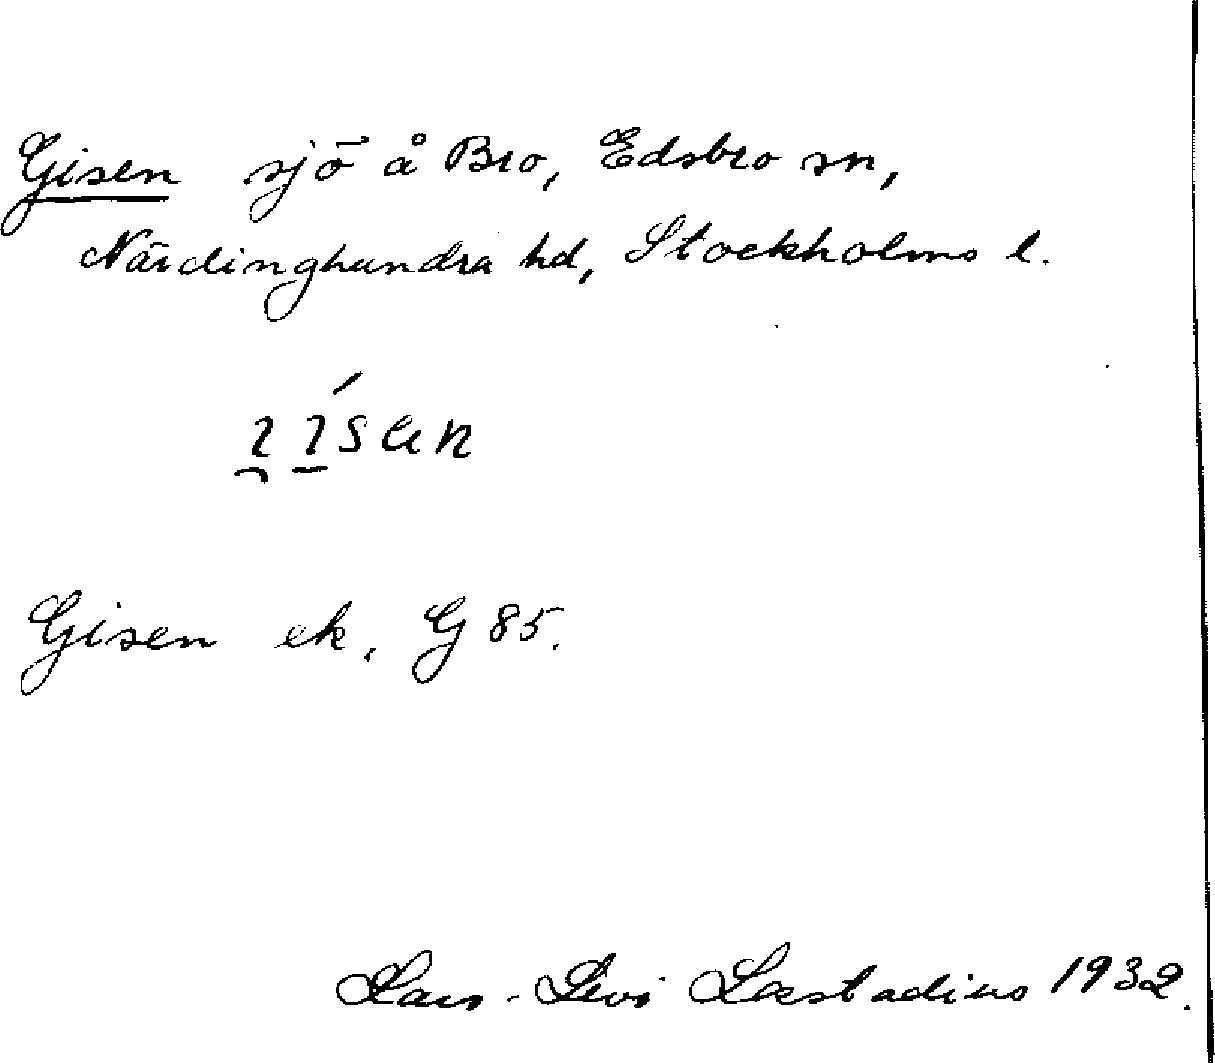 Gisen sjö å Bro, Edsbro sn,
Närdinghundra hd, Stockholms l.
Gisen ek. G 85.
Lars-Levi Læstadius 1932.